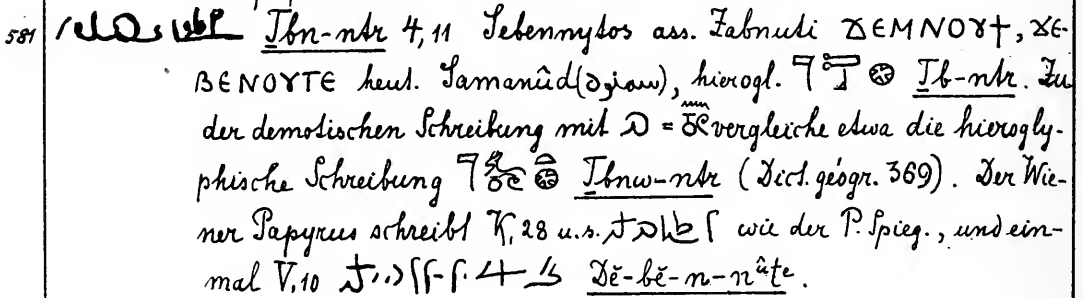 581 Ṯbn-nṯr 4,11 Sebennytos ass. Zabnuti ϪΕΜΝΟΥϮ, ϪΕ-
ΒΕΝΟΥΤΕ heut. Samanûd (سمنود), hierogl. 𓊹 𓊖 Ṯb-nṯr. Zu
der demotischen Schreibung mit = vergleiche etwa die hierogly-
phische Schreibung 𓊹 𓊖 Ṯbnw-nṯr (Dict. géogr. 369). Der Wie-
ner Papyrus schreibt V, 28 u.s. wie der P. Spieg., und ein-
mal V,10 Dĕ-bĕ-n-nûte.